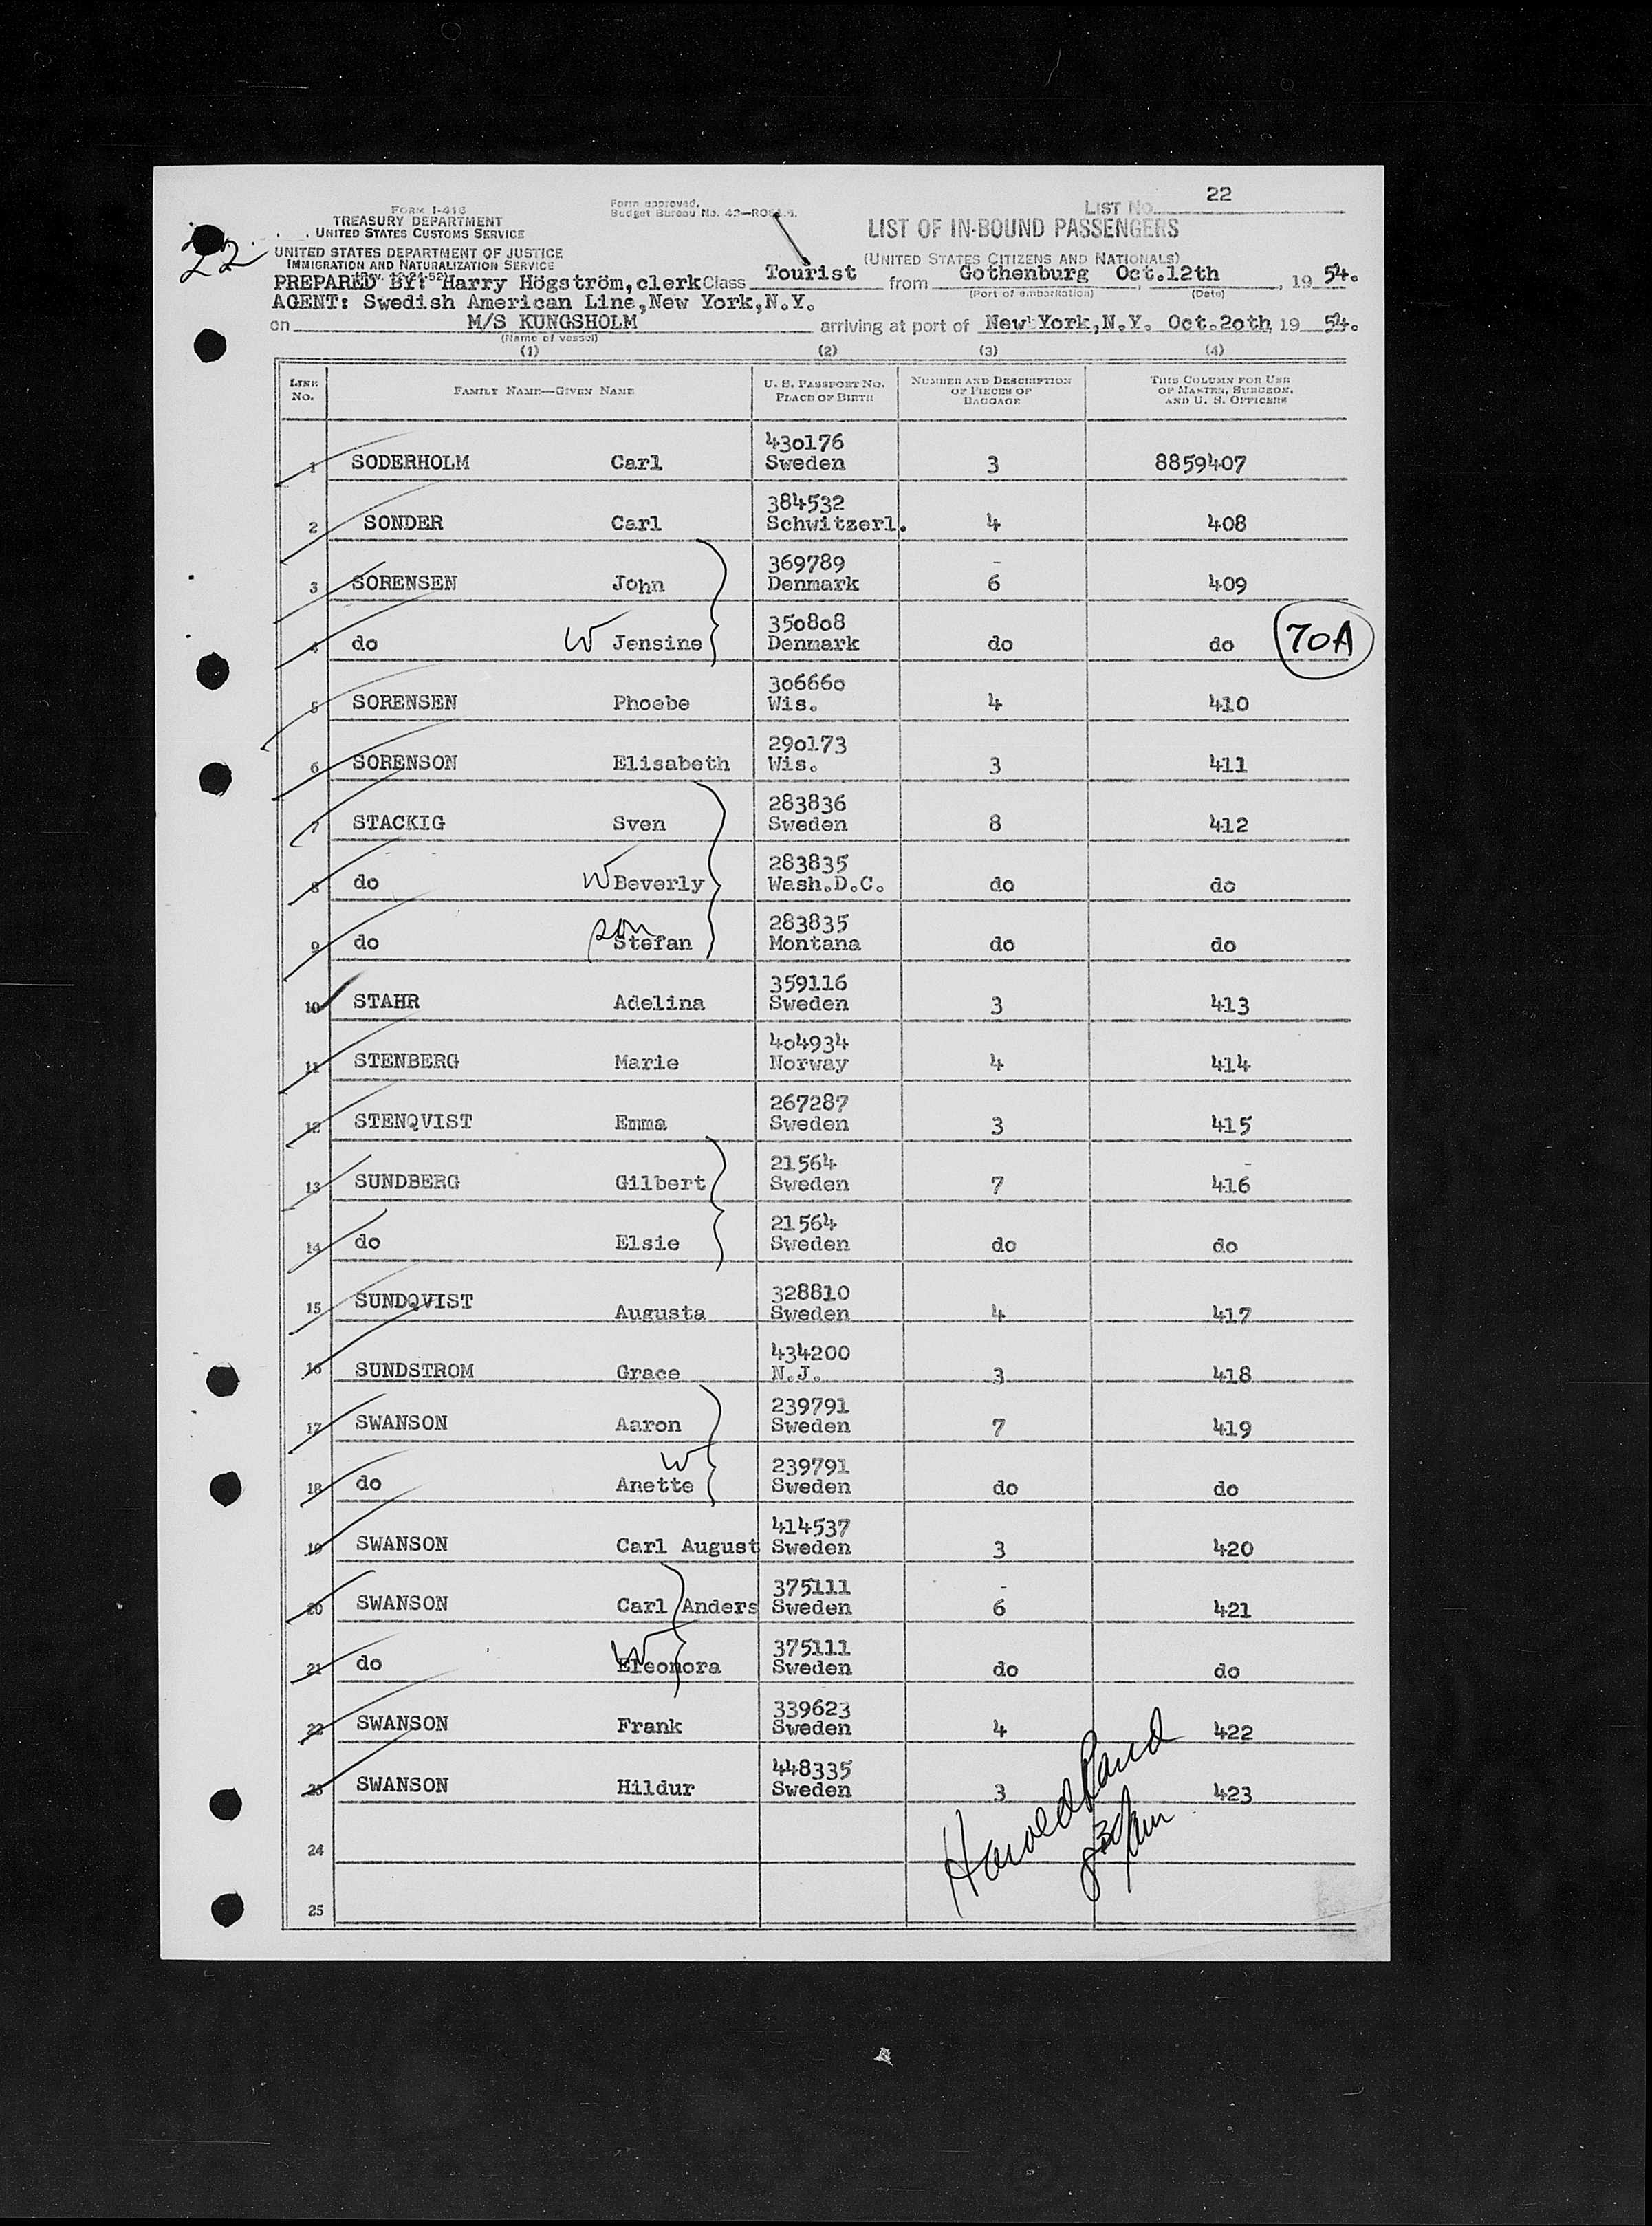 22
LIST No. 22
FORM I-416
TREASURY DEPARTMENT
UNITED STATES CUSTOMS SERVICE
Form approved.
Budget Bureau No. 43—
LIST OF IN-BOUND PASSENGERS
(UNITED STATES CITIZENS AND NATIONALS)
UNITED STATES DEPARTMENT OF JUSTICE
IMMIGRATION AND NATURALIZATION SERVICE
PREPARED BY: Harry Högström, clerk Class Tourist from Gothenburg Oct.12th, 19 54.
(Port of embarkation) (Date)
AGENT: Swedish American Line, New York, N.Y.
on M/S KUNGSHOLM arriving at port of New York, N.Y. Oct.2oth 19 54.
(Name of vessel)
(1) (2) (3) (4)
LINE No. FAMILY NAME—GIVEN NAME U. S. PASSPORT NO. PLACE OF BIRTH NUMBER AND DESCRIPTION OF PIECES OF BAGGAGE THIS COLUMN FOR USE OF MASTER, SURGEON, AND U. S. OFFICERS
430176
1 SODERHOLM Carl Sweden 3 8859407
384532
2 SONDER Carl Schwitzerl. 4 408
369789
3 SORENSEN John Denmark 6 409
350808
4 do W Jensine Denmark do do 70A
306660
5 SORENSEN Phoebe Wis. 4 410
290173
6 SORENSON Elisabeth Wis. 3 411
283836
7 STACKIG Sven Sweden 8 412
283835
8 do W Beverly Wash.D.C. do do
283835
9 do son Stefan Montana do do
359116
10 STAHR Adelina Sweden 3 413
404934
11 STENBERG Marie Norway 4 414
267287
12 STENQVIST Emma Sweden 3 415
21564
13 SUNDBERG Gilbert Sweden 7 416
21564
14 do Elsie Sweden do do
328810
15 SUNDQVIST Augusta Sweden 4 417
434200
16 SUNDSTROM Grace N.J. 3 418
239791
17 SWANSON Aaron Sweden 7 419
239791
18 do W Anette Sweden do do
414537
19 SWANSON Carl August Sweden 3 420
375111
20 SWANSON Carl Anders Sweden 6 421
375111
21 do W Eleonora Sweden do do
339623
22 SWANSON Frank Sweden 4 422
448335
23 SWANSON Hildur Sweden 3 423
24
25